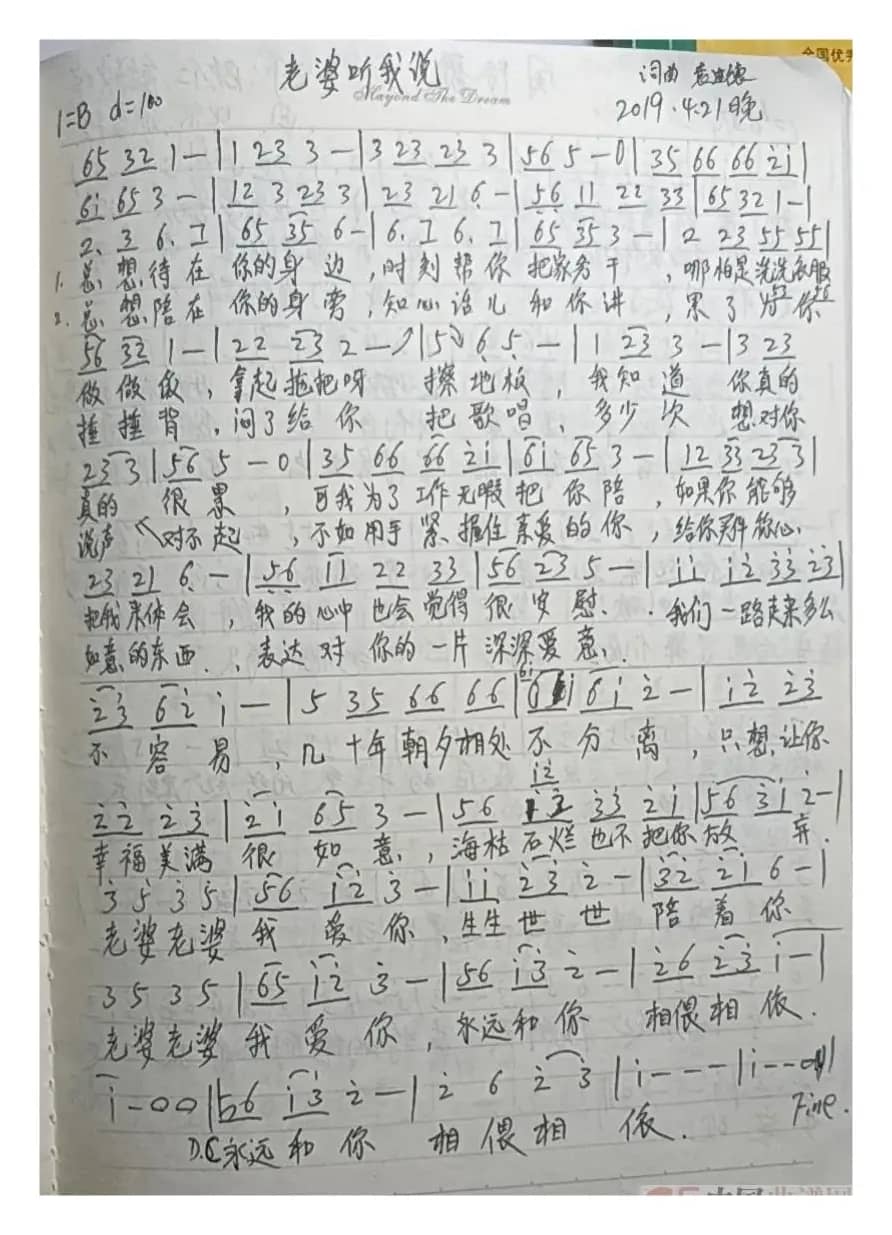 全国优秀
老婆听我说
Mayond The Dream
词曲
2019.4.21晚
1=B d=100
65 32 1 - | 1 23 3 - | 3 23 23 3 | 56 5 - 0 | 35 66 66 2̇1̇ |
61̇ 65 3 - | 12 3 23 3 | 23 21 6̣ - | 5̣6̣ 11 22 33 | 65 32 1 - |
2. 3 6. 1 | 65 35 6 - | 6. 1 6. 1 | 65 35 3 - | 2 23 55 55 |
1. 总想待在 你的身边,时刻帮你 把家务干,哪怕是洗洗衣服
2. 总想陪在 你的身旁,知心话儿 和你讲,累了为你
56 32 1 - | 22 23 2 - | 5 6̣ 5̣ - | 1 23 3 - | 3 23
做做饭,拿起拖把呀 擦地板,我知道 你真的
捶捶背,闷了给你 把歌唱,多少次 想对你
23 3 | 56 5 - 0 | 35 66 66 2̇1̇ | 61̇ 65 3 - | 12 33 23 3 |
真的 很累,可我为了工作无暇把你陪,如果你能够
说声 对不起,不如用手紧握住亲爱的你,给你买件称心
23 21 6̣ - | 5̣6̣ 11 22 33 | 56 23 5 - | 1̇1̇ 1̇2̇ 3̇3̇ 2̇3̇ |
把我来体会,我的心中也会觉得很安慰..我们一路走来多么
如意的东西.,表达对你的一片深深爱意.
2̇3̇ 62̇ 1̇ - | 5 35 66 66 | 61̇ 61̇ 2̇ - | 1̇2̇ 2̇3̇
不容易,几十年朝夕相处不分离,只想让你
1̇2̇
2̇2̇ 2̇3̇ | 2̇1̇ 65 3 - | 56 3̇3̇ 2̇1̇ | 56 3̇1̇ 2̇ - |
幸福美满 很如意,海枯石烂也不把你放弃.
3̇ 5̇ 3̇ 5̇ | 56 1̇2̇ 3̇ - | 1̇1̇ 2̇3̇ 2̇ - | 3̇2̇ 2̇1̇ 6 - |
老婆老婆 我爱你,生生世世 陪着你
3 5 3 5 | 65 1̇2̇ 3̇ - | 56 1̇3̇ 2̇ - | 2̇6 2̇3̇ 1̇ - |
老婆老婆 我爱你,永远和你 相偎相依.
1̇ - 0 0 | 56 1̇3̇ 2̇ - | 2̇ 6 2̇ 3̇ | 1̇ - - - | 1̇ - - 0 |
D.C永远和你 相偎相依. Fine.